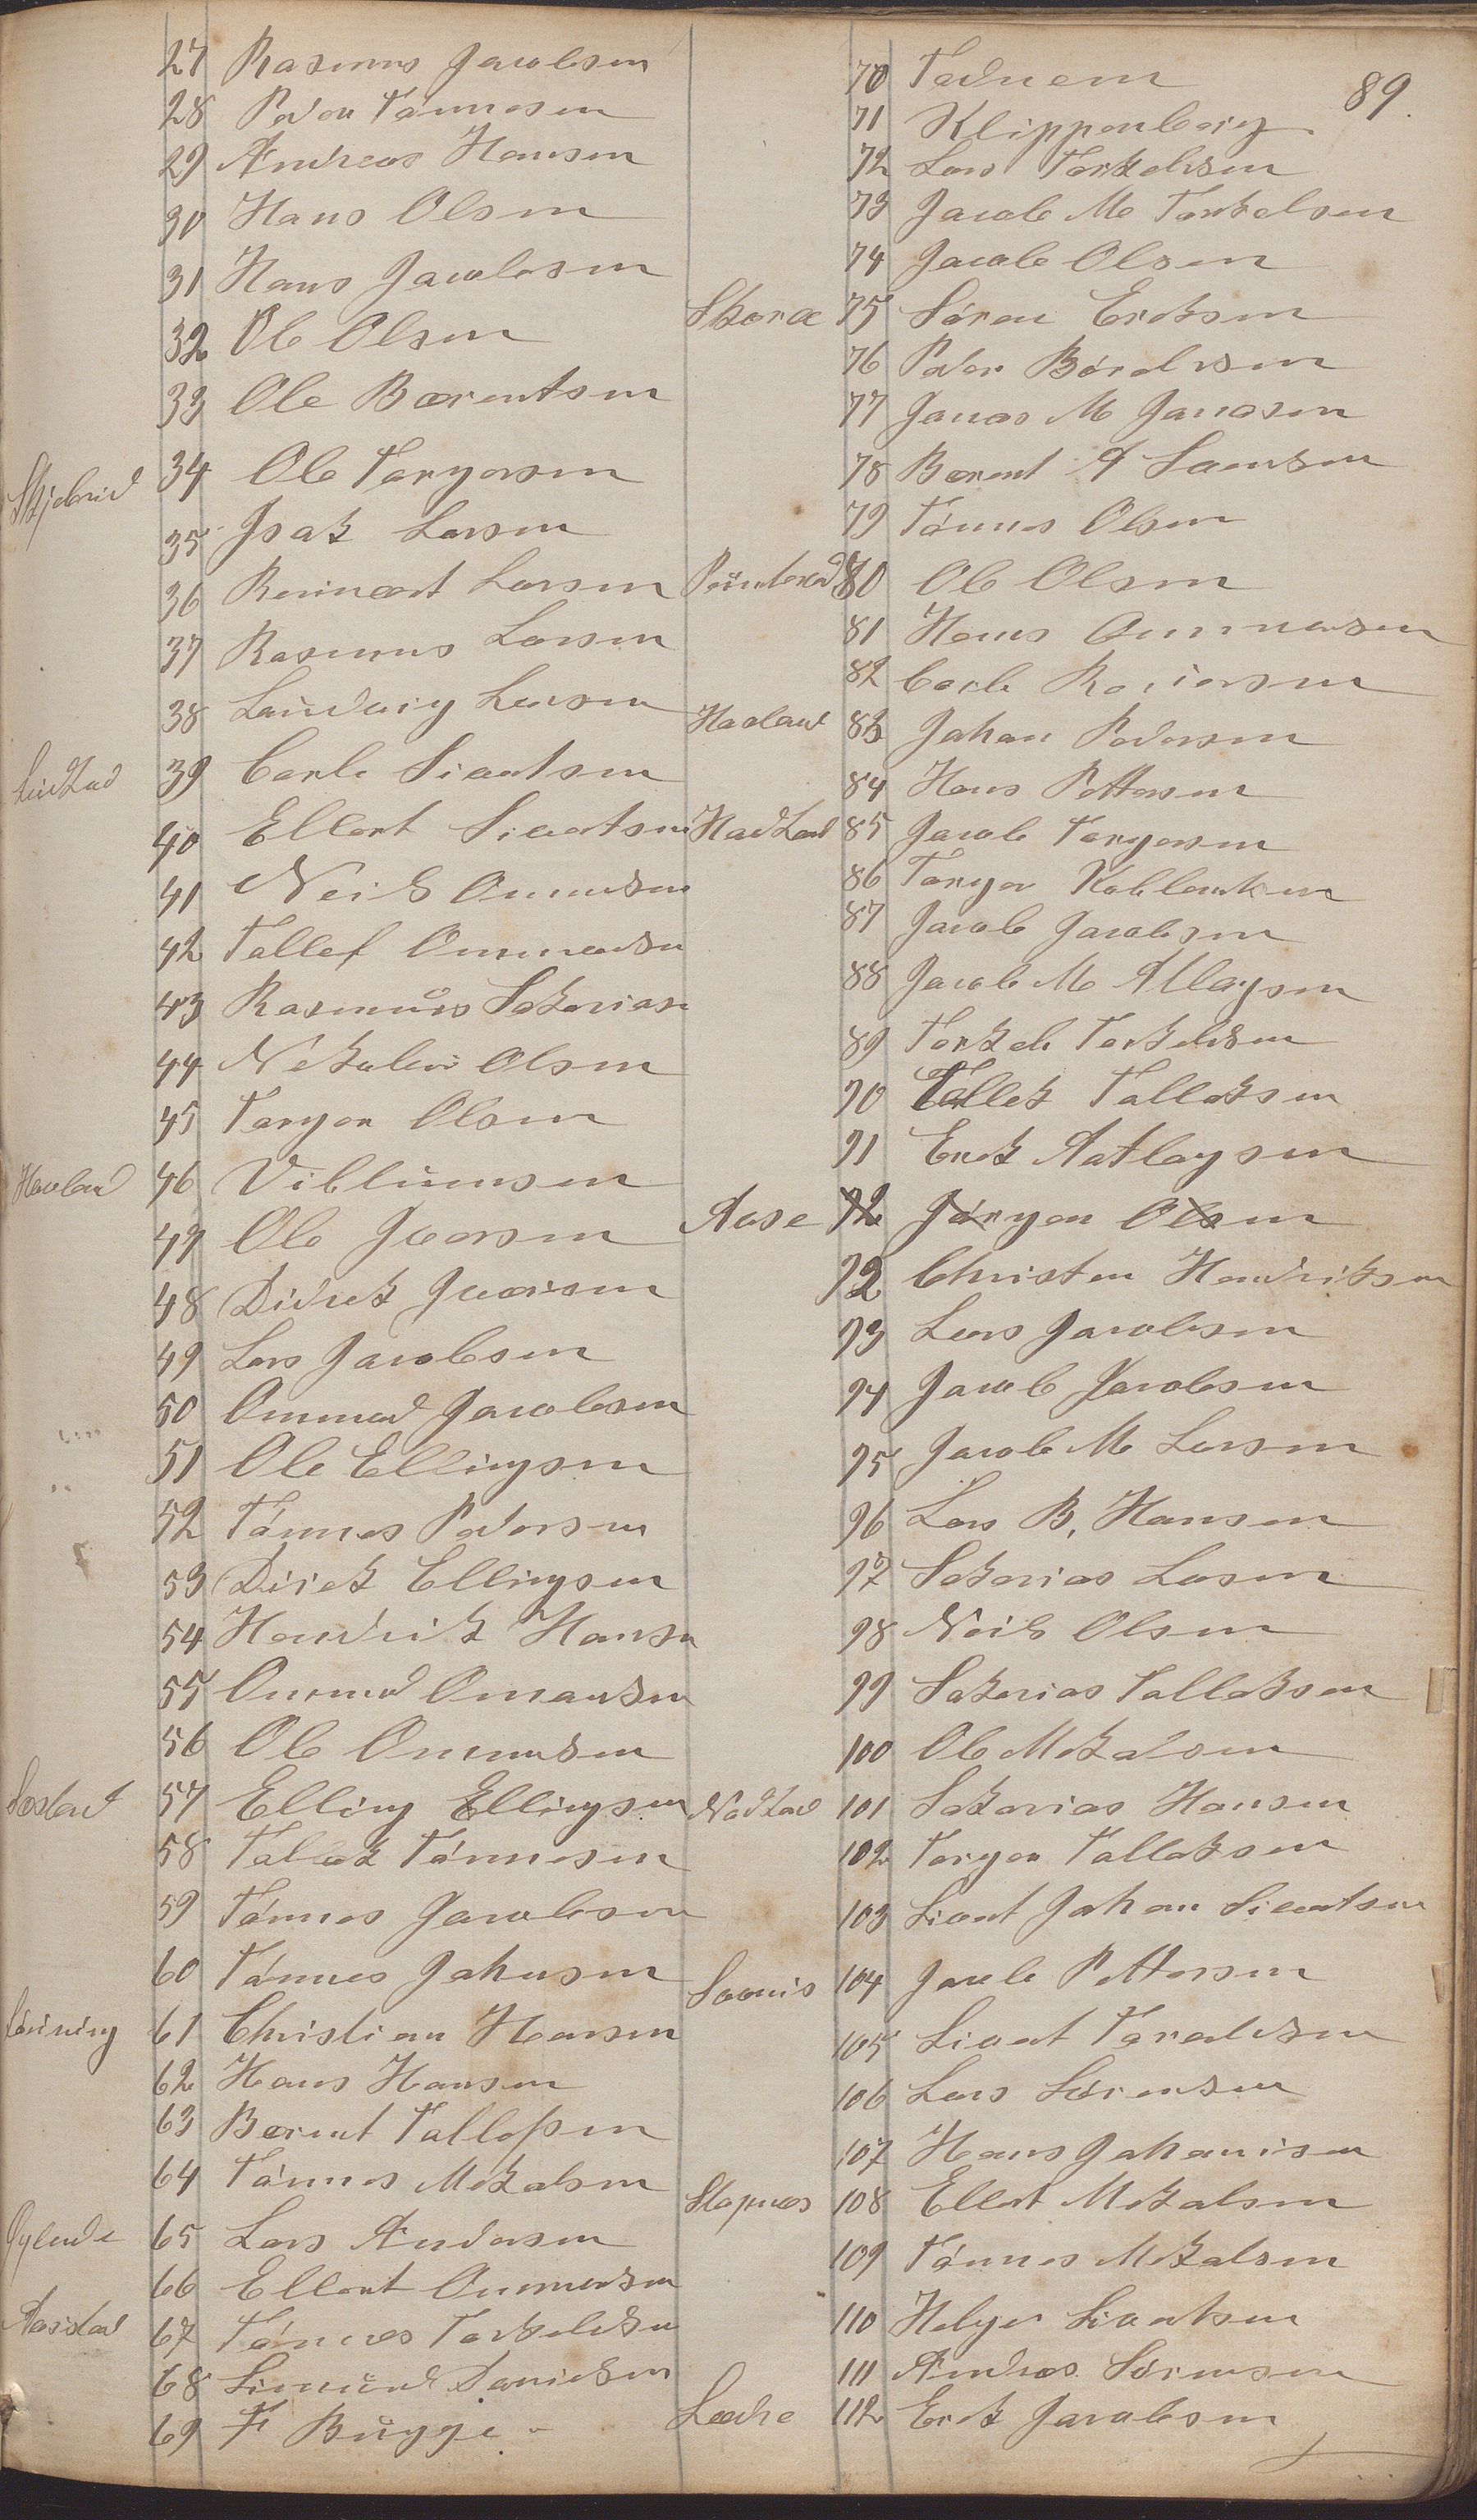 89.
27 Rasmus Jacobsen
28 Peder Tønnesen
29 Andreas Hansen
30 Hans Olsen
31 Hans Jacobsen
32 Ole Olsen
33 Ole Bærentsen
34 Ole Taryersen
Skjebrid
35 Isak Larsen
36 Reinært Larsen
37 Rasmus Larsen
38 Laudvig Larsen
39 Carle Sivertsen
40 Ellert Sivertsen
41 Neils Ommudsen
42 Tallef Ommundsen
43 Rasmus Sakariasn
44 Nekolai Olsen
45 Taryer Olsen
Haveland 46 Villumsen
47 Ole Iversen
48 Didrek Iversen
49 Lars Jacobsen
50 Ommed Jacobsen
51 Ole Ellingsen
52 Tønnes Pedersen
53 Direk Ellingsen
54 Hendrik Hansn
55 Ommud Omandsen
56 Ole Ommudsen
57 Elling Ellingsen
58 Tallek Tønnesen
59 Tønnes Jacobsen
60 Tønnes Johnsen
61 Christian Hansen
62 Hans Hansen
63 Bærent Talleksen
64 Tønnes Mekalsen
65 Lars Andersen
66 Ellert Ommundsen
67 Tønnes Torkeldsen
68 Simund Danielsen
69 F Bugge
70 Tednem
71 Klippenberg
72 Lars Torkeldsen
73 Jacob M Torkelsen
74 Jacob Olsen
Skoræ 75 Søren Ereksen
76 Peder Børoldsen
77 Jonas M Jonasen
78 Bærent A Samdsen
79 Tønnes Olsen
80 Ole Olsen
81 Hans Ommundsen
82 Carle Reiersen
Haaland 83 Johan Pedersen
84 Hans Pettersen
85 Jacob Taryersen
86 Taryer
87 Jacob Jacobsen
88 Jacob M Atlaysen
89 Torkel Torkeldsen
90 Tallek Talleksen
91 Erek Aatlaysen
Aase 92 Jøryen Olsen
92 Christen Hendriksen
93 Lars Jacobsen
94 Jacob Jacobsen
95 Jacob M Larsen
96 Lars B. Hansen
97 Sakarias Larsen
98 Neils Olsen
99 Sakarias Talleksen
100 Ole Mekalsen
101 Sakarias Hansen
102 Taryer Talleksen
103 Sivert Johan Sivertsen
104 Jacob Pettersen
105 Sivert Taraldsen
106 Lars Sørensen
107 Hans Johanisen
Stapnes 108 Ellert Mekalsen
109 Tønnes Mekalsen
110 Helyer Sivertsen
111 Andreas Sørensen
112 Erek Jacobsen